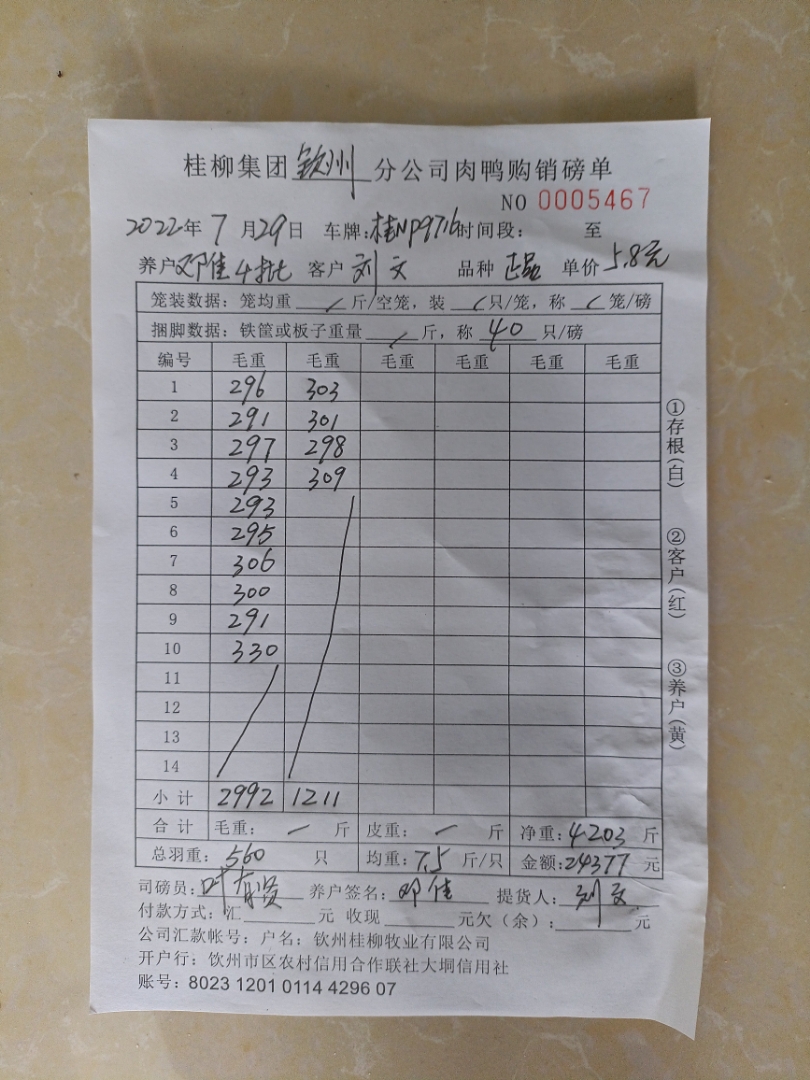 桂柳集团 钦州 分公司肉鸭购销磅单
NO 0005467
2022年 7 月29日 车牌:桂NP9716时间段: 至
养户邓佳4批 客户 刘文 品种 正品 单价5.8元
笼装数据:笼均重 / 斤/空笼,装 / 只/笼,称 / 笼/磅
捆脚数据:铁筐或板子重量 / 斤,称 40 只/磅
编号 毛重 毛重 毛重 毛重 毛重 毛重
1 296 303
2 291 301
3 297 298
4 293 309
5 293
6 295
7 306
8 300
9 291
10 330
11
12
13
14
小计 2992 1211
合计 毛重: — 斤 皮重: — 斤 净重:4203 斤
总羽重:560 只 均重:7.5 斤/只 金额:24377 元
司磅员:叶有贤 养户签名:邓佳 提货人:刘文
付款方式:汇 元 收现 元欠(余): 元
公司汇款帐号:户名:钦州桂柳牧业有限公司
开户行:钦州市区农村信用合作联社大垌信用社
账号:8023 1201 0114 4296 07
①存根(白)
②客户(红)
③养户(黄)